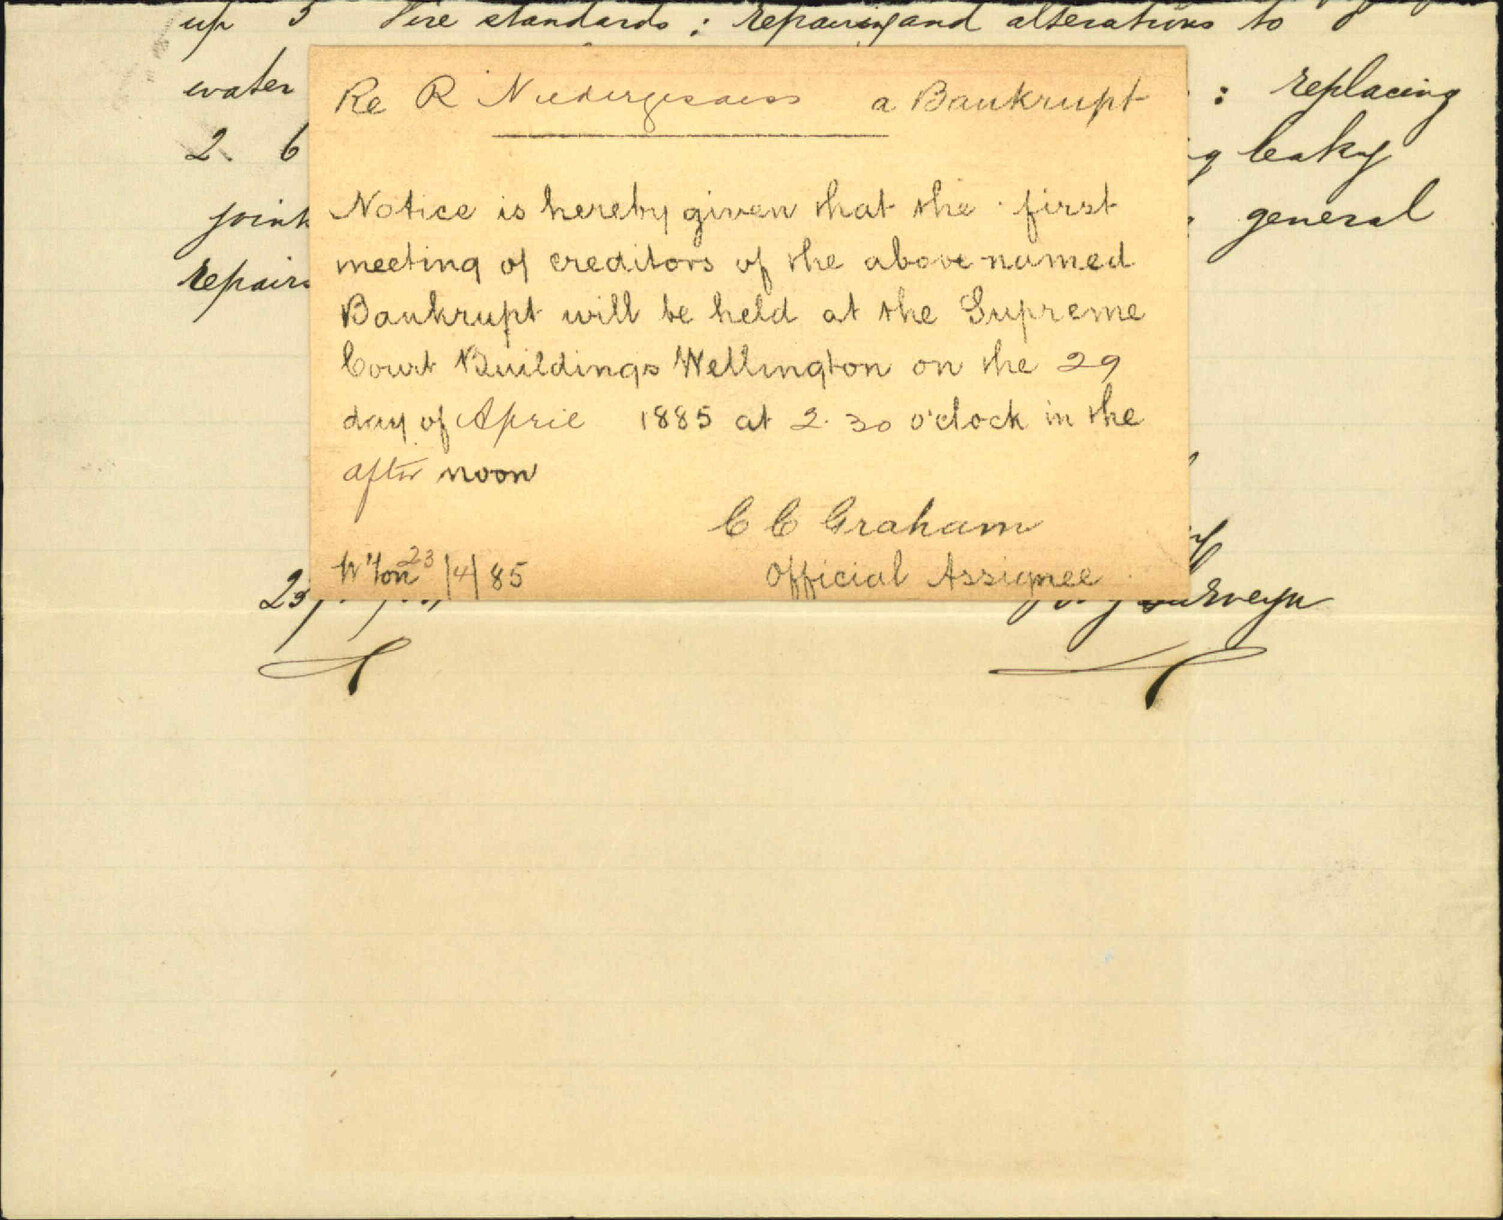 up 3 Fire standards : repairing and alterations to
water : replacing
2 6 leaky
joint general
repairs
Re R Niedergesaess a Bankrupt
Notice is hereby given that the first
meeting of creditors of the above-named
Bankrupt will be held at the Supreme
Court Buildings Wellington on the 29
day of April 1885 at 2.30 o'clock in the
after noon
C C Graham
W'ton 23/4/85 Official Assignee
23 Surveyor